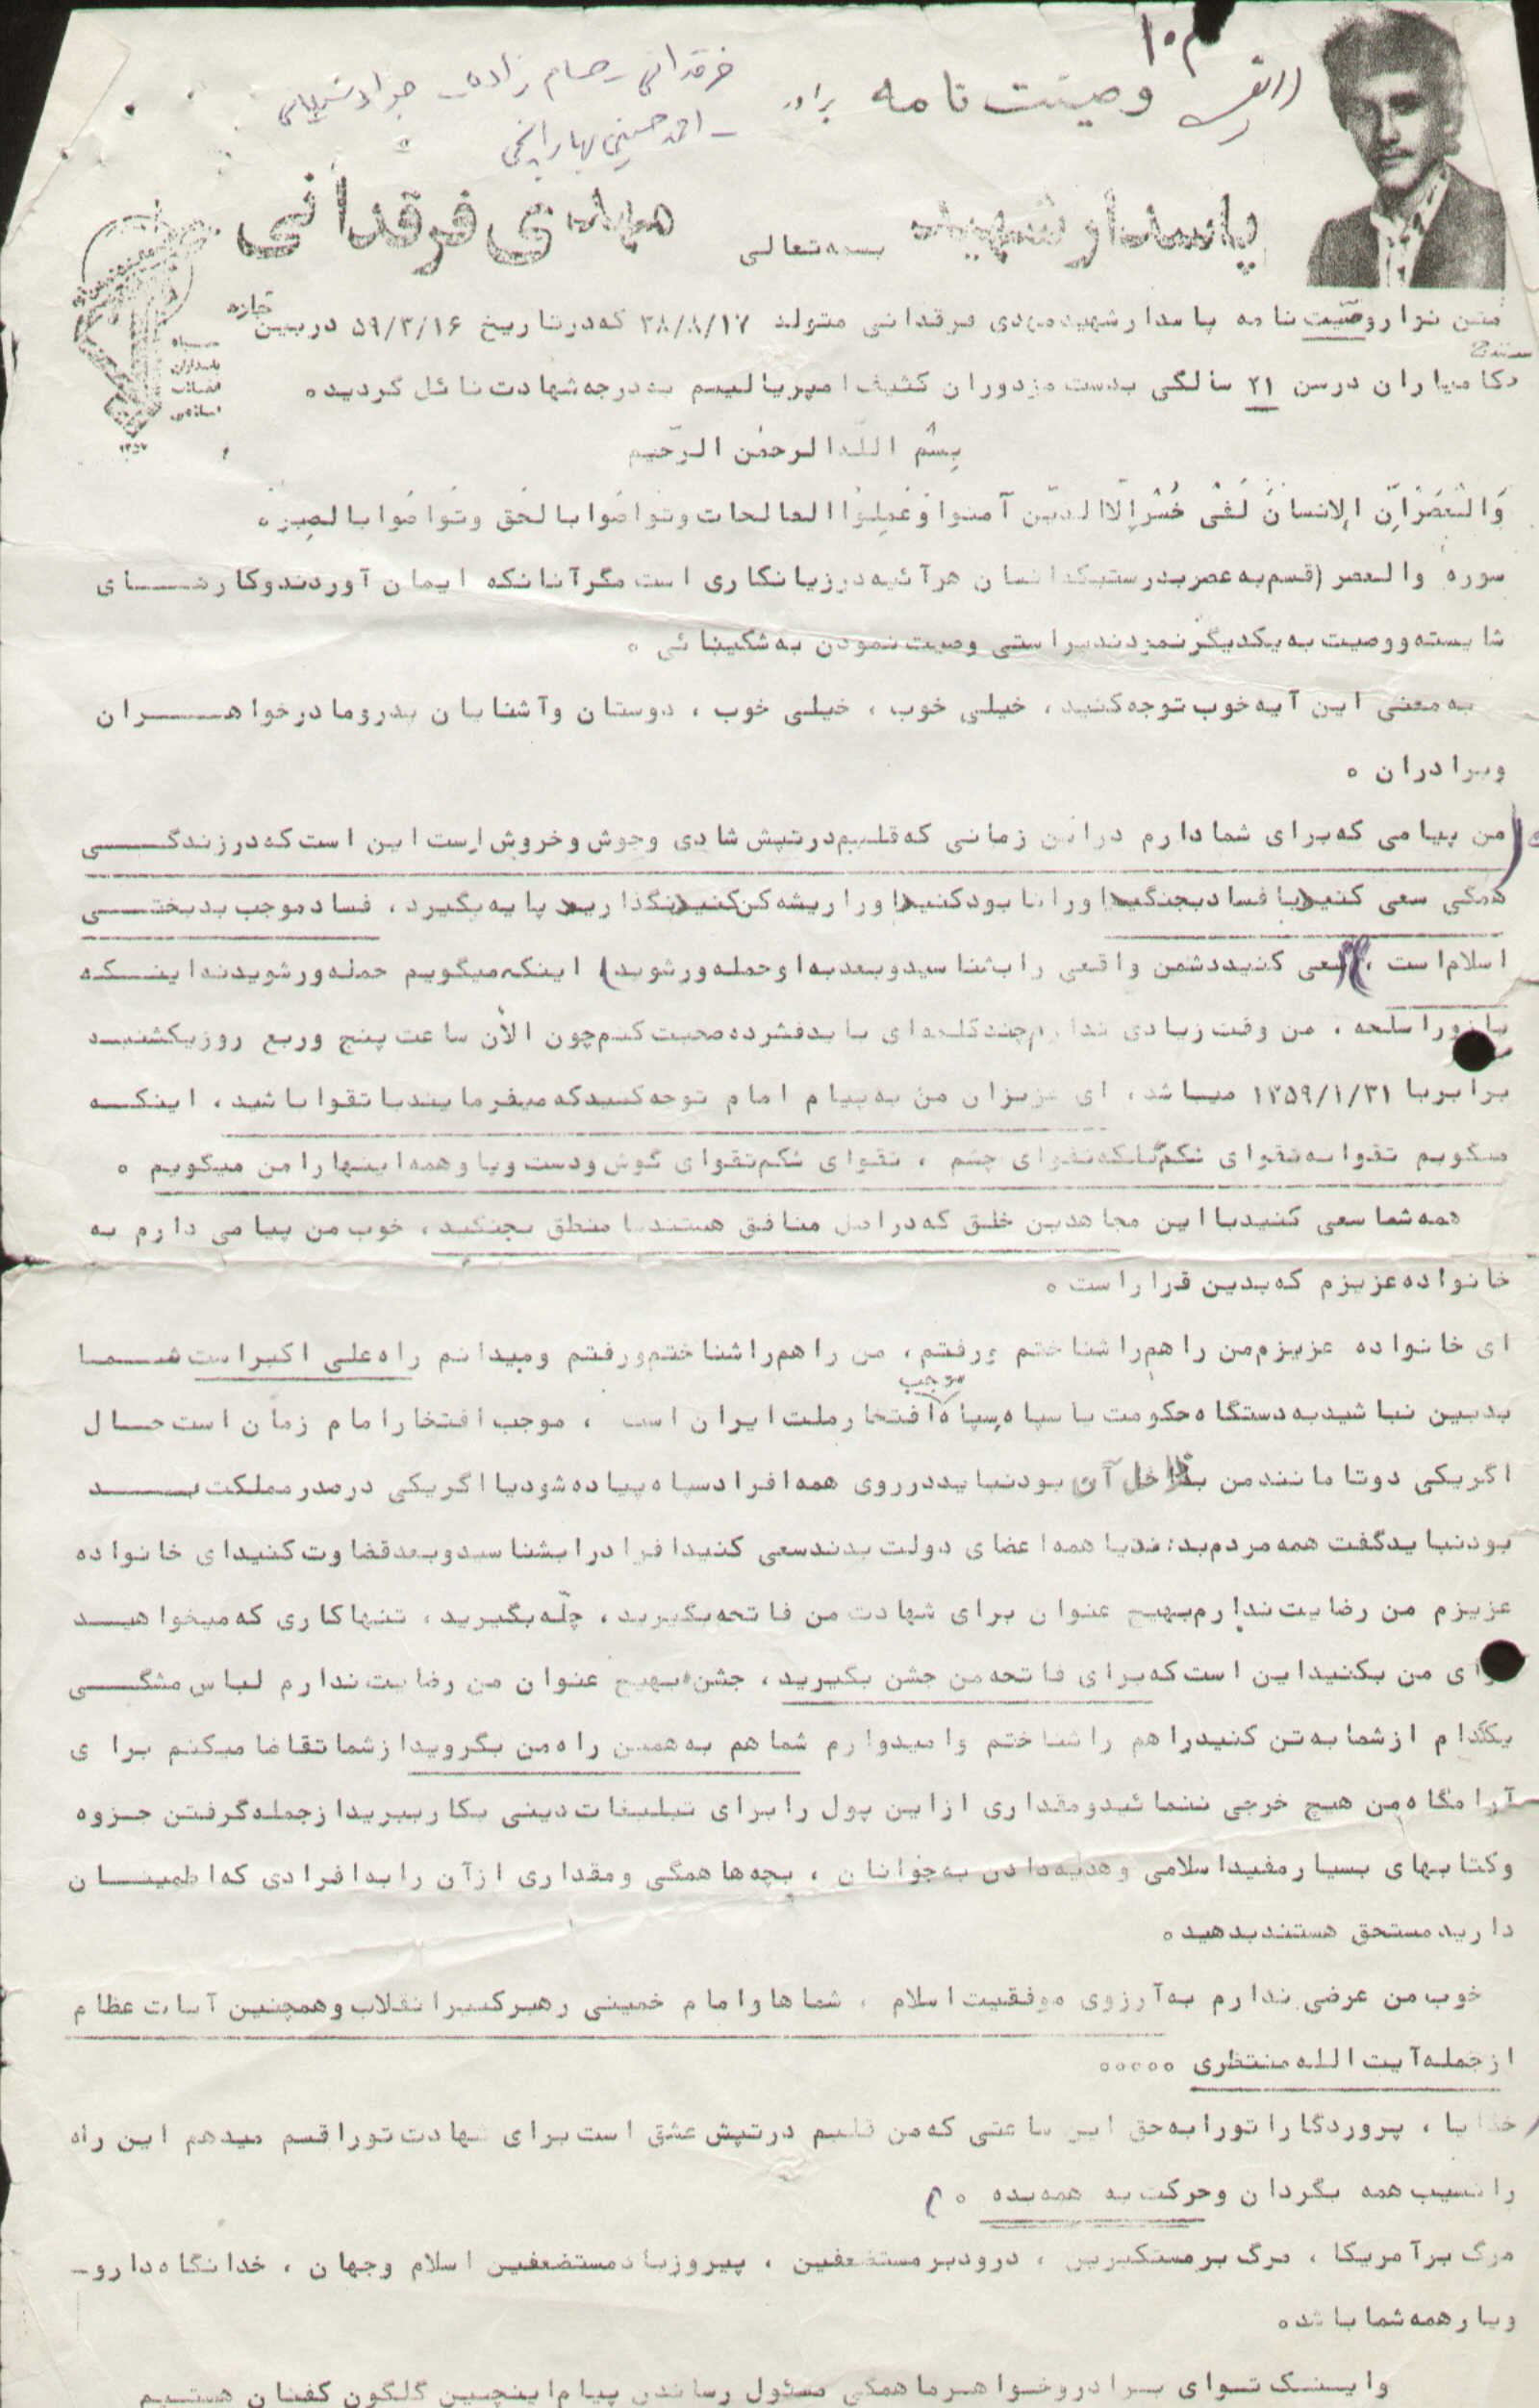 وصیت نامه برادر
پاسدار شهید مهدی فرقدانی
بسمه تعالی
سپاه پاسداران انقلاب اسلامی
متن نوار وصیت نامه پاسدار شهید مهدی فرقدانی متولد ۳۸/۸/۱۷ که در تاریخ ۵۹/۳/۱۶ در بین جازه
سنندج
کامیاران در سن ۲۱ سالگی بدست مزدوران کثیف امپریالیسم به درجه شهادت نائل گردید۰
بِسْمِ اللّه الرحمٰن الرّحیم
وَالْعَصْرِ اِنَّ الاِنسانَ لَفی خُسْر اِلّا الذیّن آمنوا وَ عَمِلوُا الصالحات وتواصَوا بالحَق وتَواصَوا بالصبِر۰
سوره والعصر (قسم به عصر بدرستیکه انسان هرآئینه در زیانکاری است مگر آنانکه ایمان آوردند و کارهای
شایسته و وصیت به یکدیگر نمودند براستی وصیت نمودن به شکیبائی ۰
به معنی این آیه خوب توجه کنید، خیلی خوب ، خیلی خوب ، دوستان و آشنایان پدر و مادر خواهران
وبرادران ۰
من پیامی که برای شما دارم در این زمانی که قلبم در تپش شادی و جوش و خروش است این است که در زندگی
همگی سعی کنید با فساد بجنگید او را نابود کنید او را ریشه کن کنید نگذارید پایه بگیرد، فساد موجب بدبختی
اسلام است ، سعی کنید دشمن واقعی را بشناسید و بعد به او حمله ور شوید) اینکه میگویم حمله ور شوید نه اینکه
با زور اسلحه ، من وقت زیادی ندارم چند کلمه ای باید فشرده صحبت کنم چون الآن ساعت پنج وربع روز یکشنبه
برابر با ۱۳۵۹/۱/۳۱ میباشد، ای عزیزان من به پیام امام توجه کنید که میفرمایند با تقوا باشید، اینکه
میگویم تقوا نه تقوای شکم بلکه تقوای چشم ، تقوای شکم تقوای گوش و دست و پا و همه اینها را من میگویم ۰
همه شما سعی کنید با این مجاهدین خلق که در اصل منافق هستند با منطق بجنگید، خوب من پیامی دارم به
خانواده عزیزم که بدین قرار است ۰
ای خانواده عزیزم من راهم را شناختم ورفتم، من راهم را شناختم ورفتم ومیدانم راه علی اکبر است شما
بدبین نباشید به دستگاه حکومت یا سپاه سپاه موجب افتخار ملت ایران است ، موجب افتخار امام زمان است حال
اگر یکی دوتا مانند من بداخل آن بود نباید در روی همه افراد سپاه پیاده شود یا اگر یکی در صدر مملکت بد
بود نباید گفت همه مردم بدند یا همه اعضای دولت بدند سعی کنید افراد را بشناسید و بعد قضاوت کنید ای خانواده
عزیزم من رضایت ندارم بهیچ عنوان برای شهادت من فاتحه بگیرید، چلّه بگیرید، تنها کاری که میخواهید
برای من بکنید این است که برای فاتحه من جشن بگیرید، جشن، بهیچ عنوان من رضایت ندارم لباس مشگی
یکدام از شما به تن کنید راهم را شناختم وامیدوارم شما هم به همین راه من بگروید از شما تقاضا میکنم برای
آرامگاه من هیچ خرجی ننمائید و مقداری از این پول را برای تبلیغات دینی بکار ببرید از جمله گرفتن جزوه
وکتابهای بسیار مفید اسلامی وهدیه دادن به جوانان ، بچه ها همگی ومقداری از آن را به افرادی که اطمینان
دارید مستحق هستند بدهید۰
خوب من عرضی ندارم به آرزوی موفقیت اسلام ، شماها وامام خمینی رهبر کبیر انقلاب وهمچنین آیات عظام
از جمله آیت الله منتظری ۰۰۰۰۰
خدایا ، پروردگارا تو را به حق این ساعتی که من قلبم در تپش عشق است برای شهادت تو را قسم میدهم این راه
را نصیب همه بگردان وحرکت به همه بده ۰
مرگ بر آمریکا ، مرگ بر مستکبرین ، درود بر مستضعفین ، پیروز باد مستضعفین اسلام وجهان ، خدا نگاهدار و-
ویار همه شما باشد۰
واینک توای برادر وخواهر ما همگی مسئول رساندن پیام اینچنین گلگون کفنان هستیم